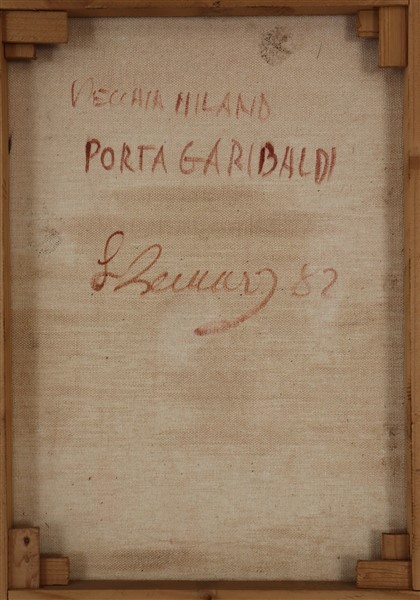 VECCHIA MILANO
PORTA GARIBALDI
82